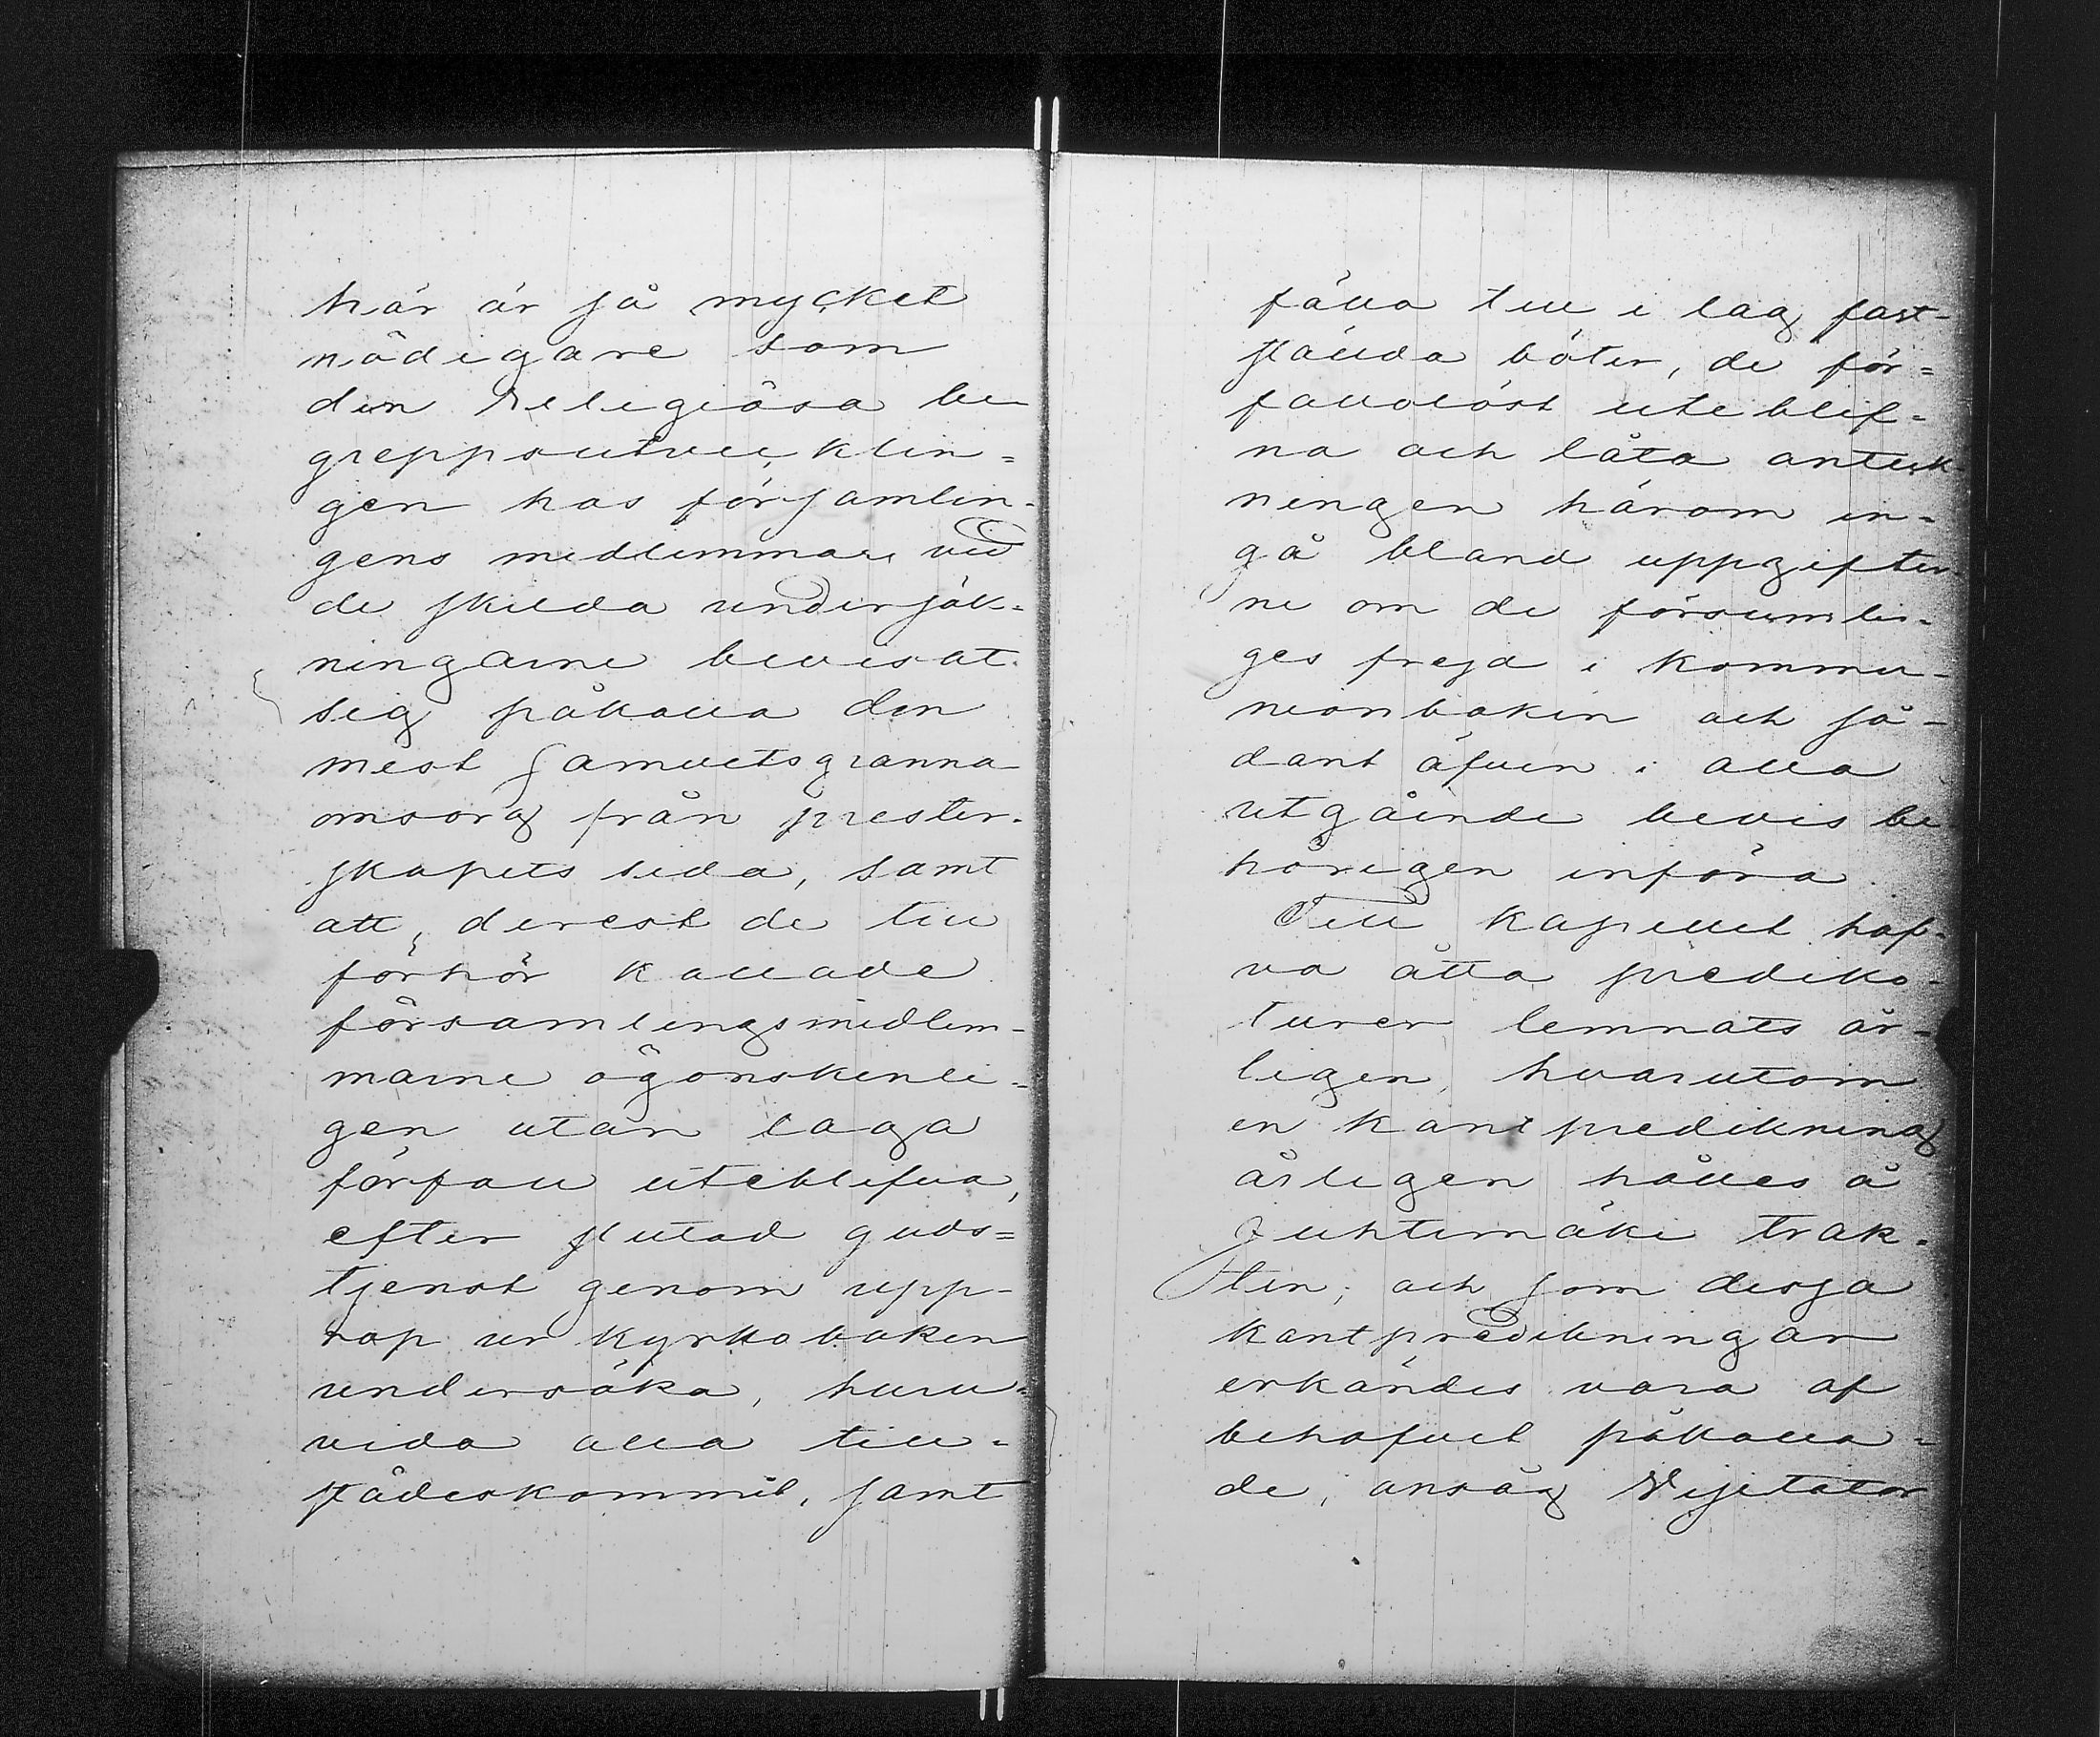 här är så mycket
nödigare som
den religiösa be
greppsutveck klin=
gen hos försjamlin-
gens medlemmar vid
de skilda undersök=
ningarne bevisat
sig påkalla den
mest samvetsgranna
omsorg från prester-
skapets sida, samt
att, derest de till
förhör kallade
församlingsmedlem-
marne ögonskenli=
gen utan laga
förfall uteblifva,
efter slutad guds=
tjenst genom upp-
rop ur kyrkoboken
undersöka, huru=
vida alla till=
städeskommit, samt
fälla till i lag fast-
stälda böter, de för=
fallolöst uteblif=
na och låta anteck-
ningen härom in=
gå bland uppgifter-
ne om de försumli-
ges frejd i kommu-
nionboken och så-
dant äfven i alla
utgående bevis be-
hörigen införa.
Till kapellet haf-
va åtta prediko-
turer lemnats år-
ligen, hvarutom
en kantpredikning
årligen hålles å
Juhtimäki trak-
ten; och som dessa
kantpredikningar
erkändes vara af
behofvet påkalla=
de, ansåg Visitator